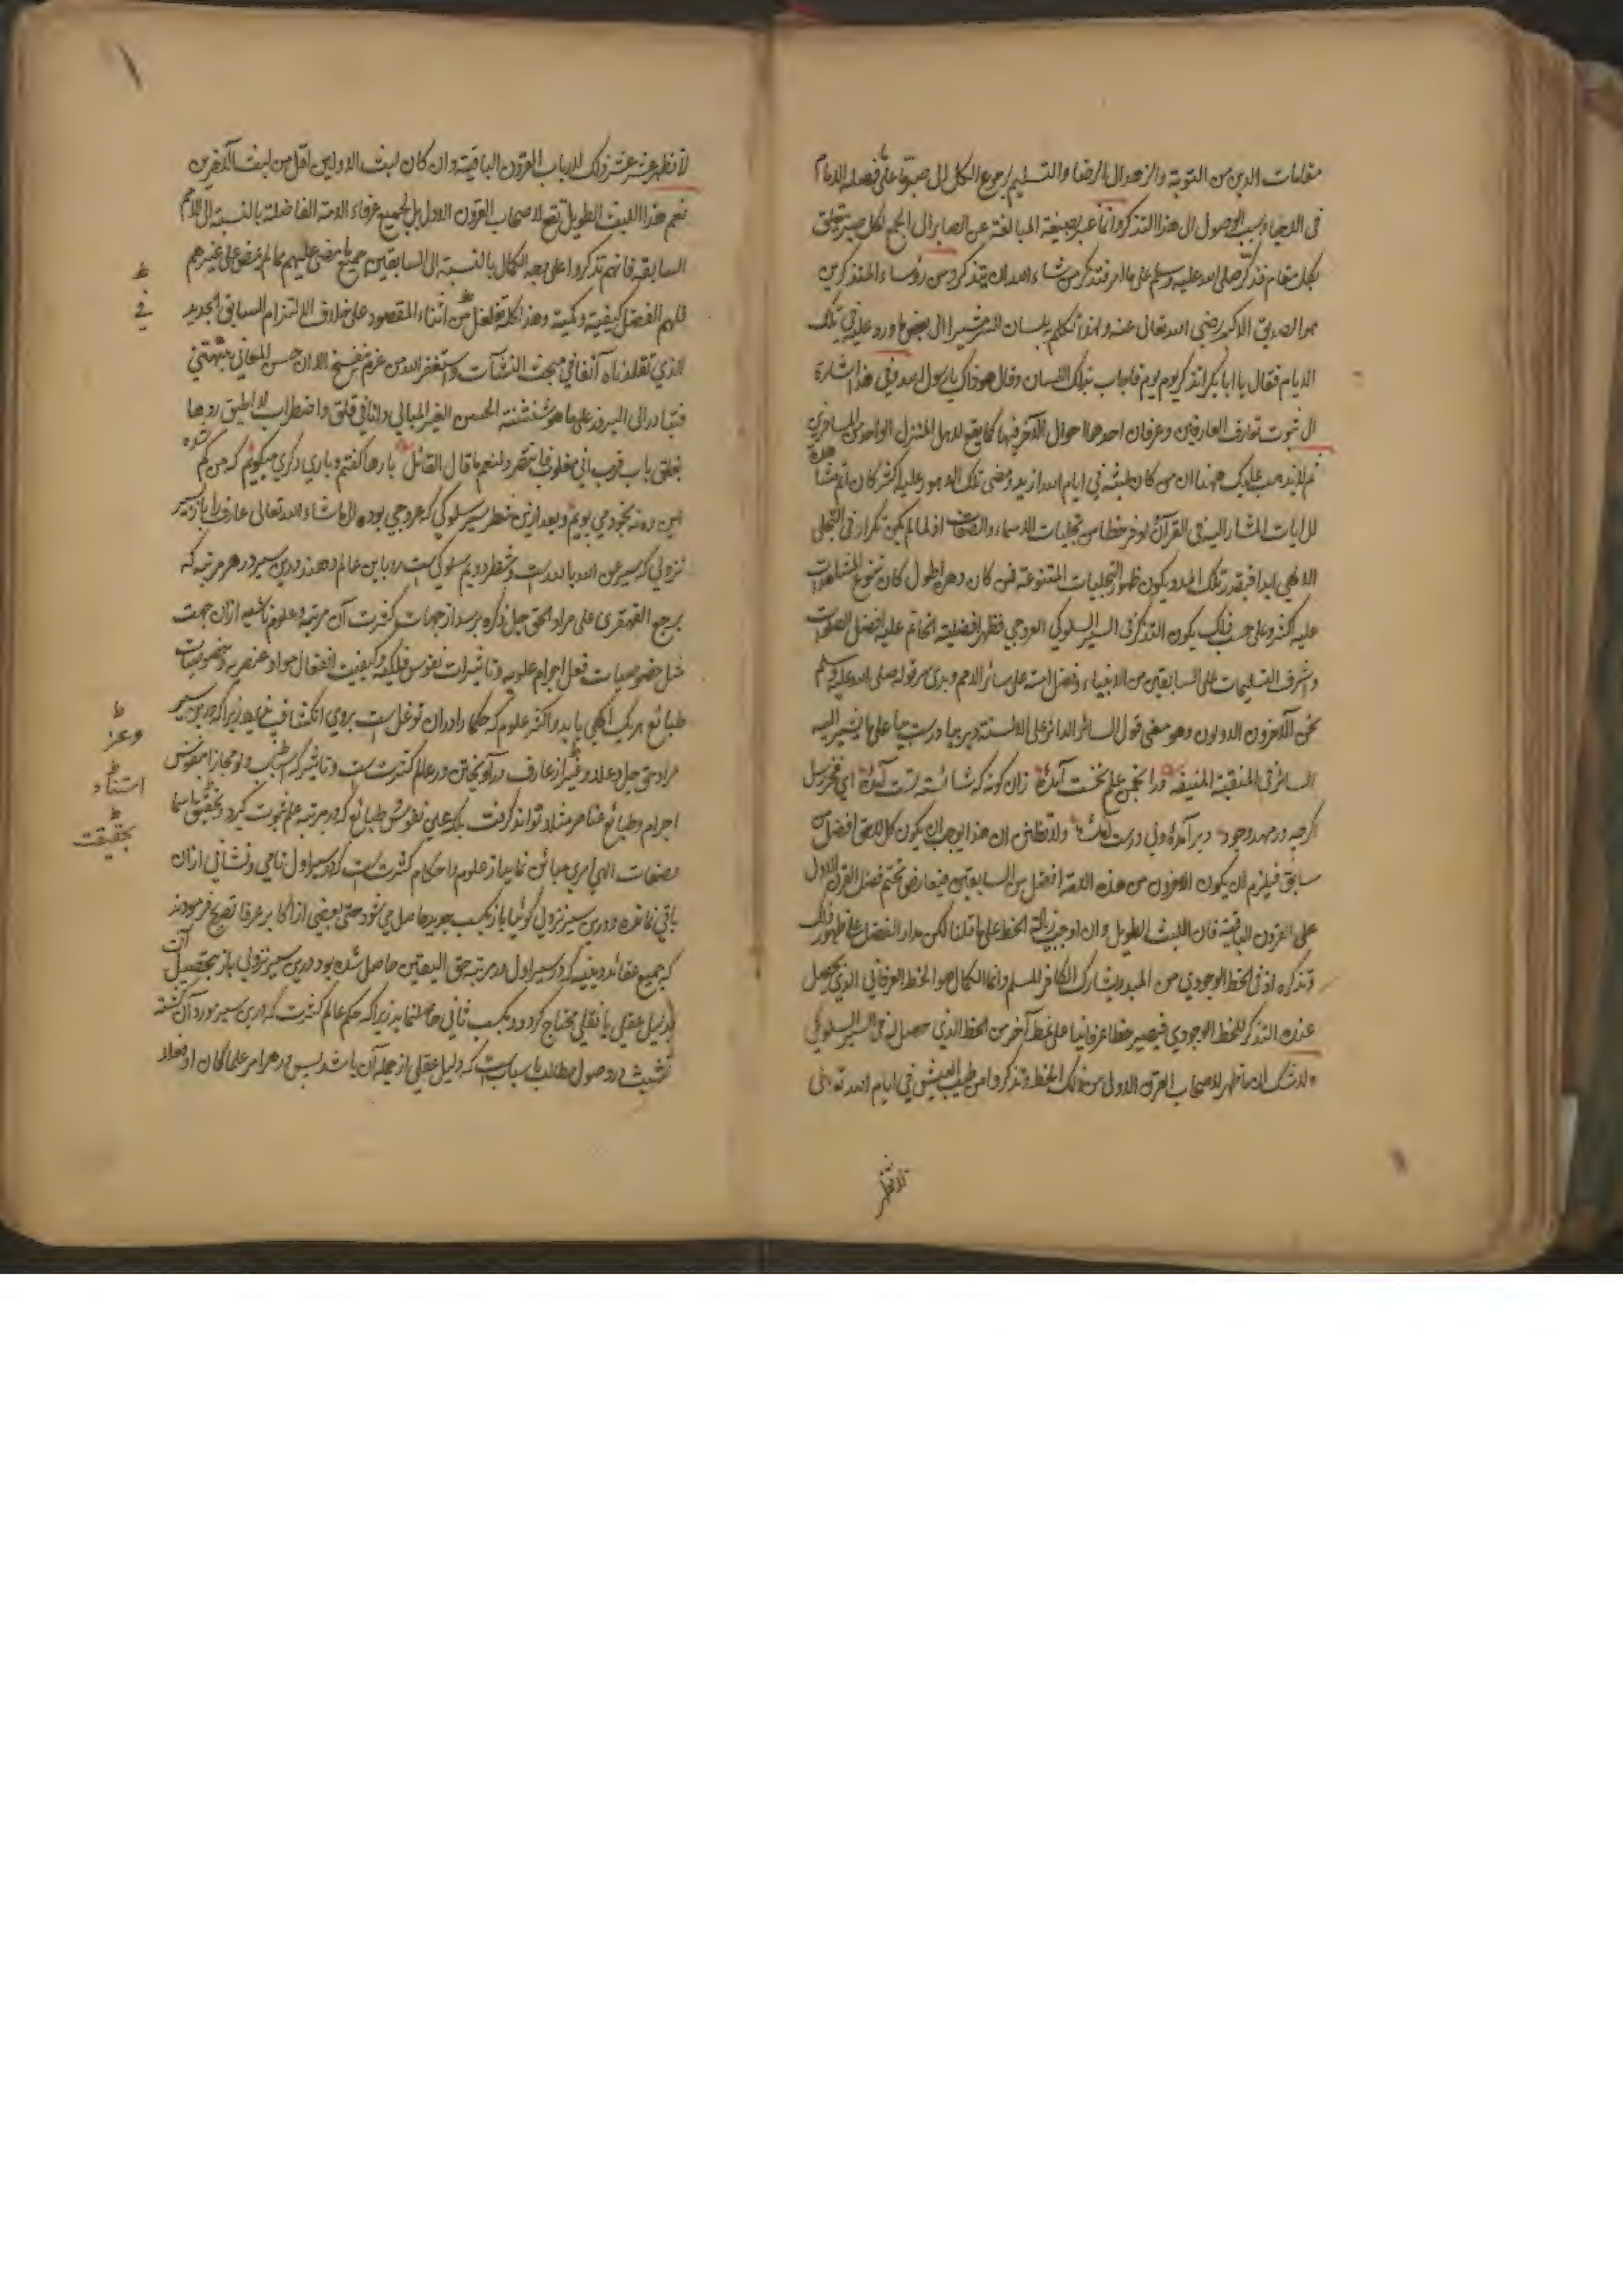 مقامات الدین من التوبة والزهد الی الرضا والتسلیم لرجوع الکل الی صبر علی فصله الامام
فی الاحیاء سبب الوصول الی هذا التذکر وانما عبر بصیغة المبالغة عن الصابر الی الجمع لکل صبر یتعلق
بکل مقام فذکر صلی الله علیه وسلم علی ما امر فتذکر من شاء الله ان یتذکر ومن رؤساء المتذکرین
هو الصدیق الاکبر رضی الله تعالی عنه ولهذا تکلم بلسان السر مشیرا الی بعض ما ورد علیه فی تلک
الایام فقال یا ابا بکر اتذکر یوم یوم فاجاب بذلک اللسان وقال هو ذاک یا رسول الله وفی هذا اشارة
الی ثبوت تعارف العارفین وعرفان احدهما احوال الآخر فیها کما یقع لاهل المنزل الواحد من المسافرین
ثم لا یذهب علیک ههنا ان من کان لبثه فی ایام الله ازید ومضی تلک الدهور علیه اکثر کان اتم مشاهدة
للآیات المشار الیه فی القرآن اوفر حظا من تجلیات الاسماء والصفات اذ لما لم یکن تکرار فی التجلی
الالهی ابدا فبقدر تلک المدد یکون ظهور التجلیات المتنوعة فمن کان دهره اطول کان تنوع المشاهدات
علیه اکثر وعلی حسب ذلک یکون التذکر فی السیر السلوکی العروجی فظهر افضلیة الخاتم علیه افضل الصلوات
واشرف التسلیمات علی السابقین من الانبیاء وفضل امته علی سائر الامم وبدی سر قوله صلی الله علیه وسلم
نحن الآخرون الاولون وهو معنی قول السائر الدائر علی الالسنة دیر بیا درست بیا علی ما یشیر الیه
السائر فی المنقبة المنیفة فرد انجمن علم نخست آمده زان کونه که شائسته تست آمده ای فخر رسل
اگرچه در مهد وجود دیر آمده ولی درست آمده ولا تظنن ان هذا یوجب ان یکون کل لاحق افضل من
سابق فیلزم ان یکون الآخرون من هذه الامة افضل من السابقین فیعارض تحتم فضل القرن الاول
علی القرون الباقیة فان اللبث الطویل وان اوجب زیادة الحظ علی ما قلنا لکن مدار الفضل علی ظهور ذلک
وتذکره اذ فی الحظ الوجودی من المبدء یشارک الکافر للمسلم وانما الکمال هو الحظ العرفانی الذی یحصل
عند التذکر للحظ الوجودی فیصیر حظا عرفانیا علی نمط آخر من الحظ الذی حصل له فی السیر السلوکی
ولا شک ان ما ظهر لاصحاب القرن الاول من ذلک الحظ وتذکروا من طیب العیش فی ایام الله تعالی
لا تظهر
لا تظهر عشر عشر ذلک لارباب القرون الباقیة وان کان لبث الاولین اقل من لبث الآخرین
نعم هذا اللبث الطویل تقع لاصحاب القرون الاول بل لجمیع عرفاء الامة الفاضلة بالنسبة الی الامم
السابقة فانهم تذکروا علی وجه الکمال بالنسبة الی السابقین جمیع ما مضی علیهم مما لم یمض علی غیرهم
فلهم الفضل کیفیة وکمیة وهذا کله تغلغل من اثناء المقصود علی خلاف الالتزام السابق الجدید
الذی تقلدناه آنفا فی مبحث النشآت واستغفر الله من عزم نفسخ الا ان حسن المعانی یبهتنی
فتبادر الی البروز علی ما هو شنشنة الحسن الغیر المبالی وانا فی قلق واضطراب لا اطیق ردها
بغلق باب قرب انی مغلوب فانتصر ولنعم ما قال القائل بارها گفتم و باری دگری میگویم که من گم شده
این ره نه بخود می پویم و بعد ازین شطر سیر سلوکی که عروجی بوده الی ما شاء الله تعالی عارف را باز سیر
نزولی که سیر عن الله بالله است و شطر دویم سلوکی است رو باین عالم دهند و درین سیر در هر مرتبه که
یرجع القهقری علی مراد الحق جل ذکره برسد از جهات کثرت آن مرتبه و علوم ناشیه ازان جهت
مثل خصوصیات فعل اجرام علویه و تاثیرات نفوس فلکیه و کیفیت انفعال مواد عنصریه و خصوصیات
طبائع هر یک آگهی یابد و اکثر علوم که حکما را دران توغل است بروی انکشاف نماید زیرا که درین سیر
مراد حق جل و علا و غیر از عارف در آویختن در عالم کثرت ست و تاثیر که
اجرام و طبائع عناصر مثلا تواند گرفت بلکه عین نفوش طبائع که در مرتبه علم ثبوت گیرد بتحقیق باسما
و صفات الهی امری مبائن نماید از علوم و احکام کثرت ست که در سیر اول نامی و نشانی ازان
باقی نمانده و درین سیر نزول گوئیا باز بکسب جدید حاصل می شود حتی بعضی از اکابر عرفا تصریح فرمودند
که جمیع عقائد دینیه که در سیر اول در مرتبه حق الیقین حاصل شده بود درین سیر نزولی باز بتحصیل آن
بدلیل عقلی یا نقلی محتاج گردد و بکسب ثانی حاصل نماید زیرا که حکم عالم کثرت که درین سیر مورد آن گشته
تشبث در وصول مطالب باسباب ست که دلیل عقلی از جمله آن باشد پس در هر امر علما کان او فعلا
فی
وعز
استناد
بحقیقت